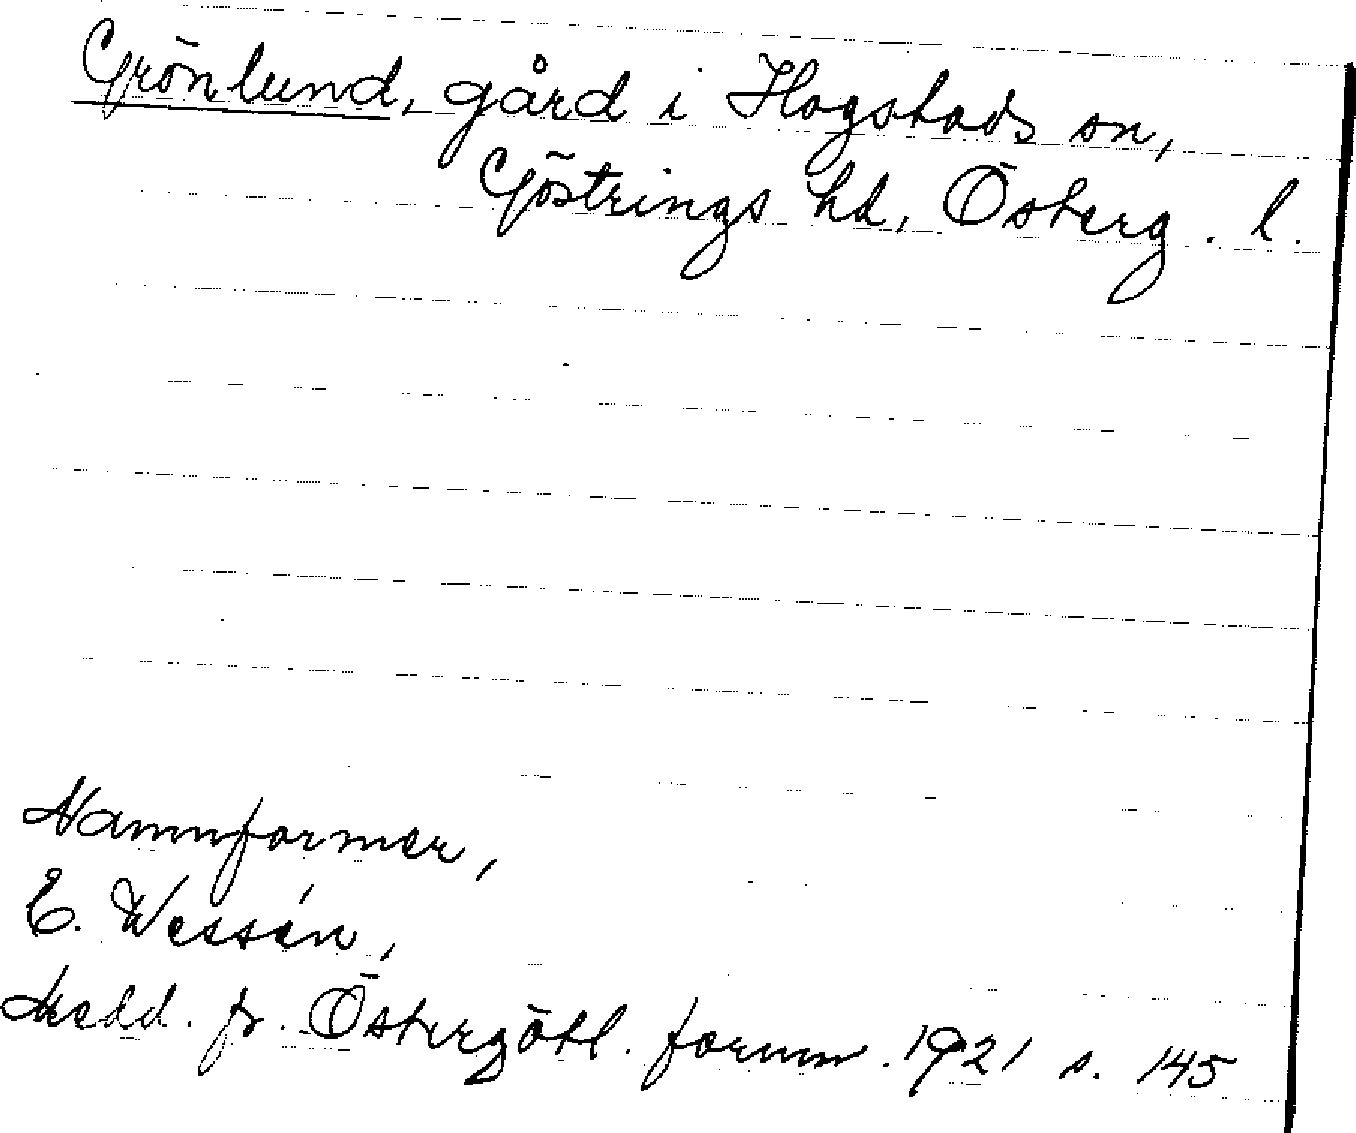 Grönlund, gård i Hogstads sn,
Göstrings hd, Österg. l.
Namnformer,
E. Wessén,
Medd. fr. Östergötl. fornm. 1921 s. 145